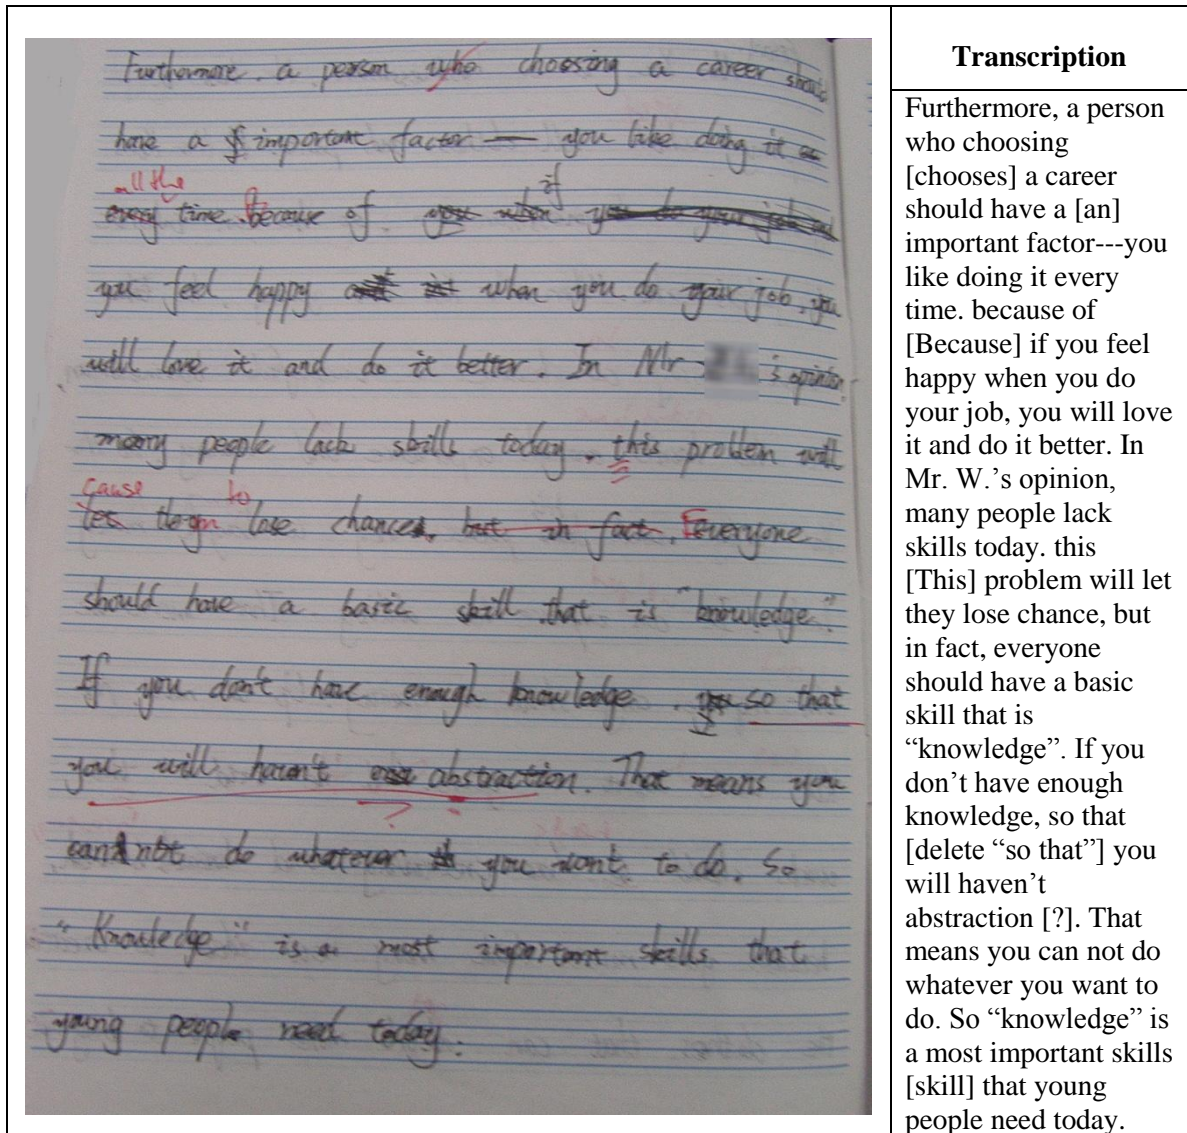 Furthermore, a person who choosing a career should
have a important factor — you like doing it
all the
if
every time. Because of you when
you feel happy when you do your job, you
will love it and do it better. In Mr 's opinion,
many people lack skills today. this problem will
cause to
let them lose chance. but in fact, Everyone
should have a basic skill that is "knowledge".
If you don't have enough knowledge. so that
you will haven't abstraction. That means you
?
can not do whatever you want to do. So
"Knowledge" is a most important skills that
young people need today.
Transcription
Furthermore, a person
who choosing
[chooses] a career
should have a [an]
important factor---you
like doing it every
time. because of
[Because] if you feel
happy when you do
your job, you will love
it and do it better. In
Mr. W.’s opinion,
many people lack
skills today. this
[This] problem will let
they lose chance, but
in fact, everyone
should have a basic
skill that is
“knowledge”. If you
don’t have enough
knowledge, so that
[delete “so that”] you
will haven’t
abstraction [?]. That
means you can not do
whatever you want to
do. So “knowledge” is
a most important skills
[skill] that young
people need today.